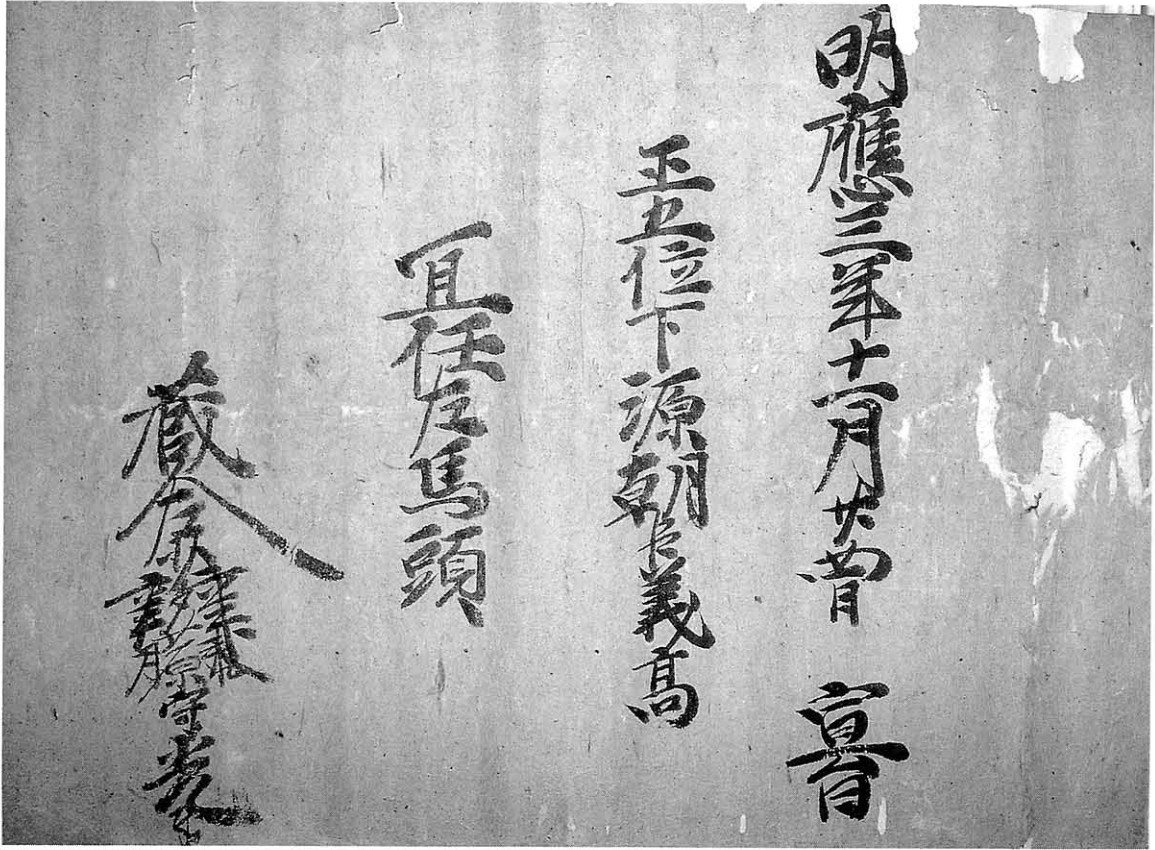 明應三年十一月廿四日 宣旨
正五位下源朝臣義高
宜任左馬頭
蔵人 藤原守光奉